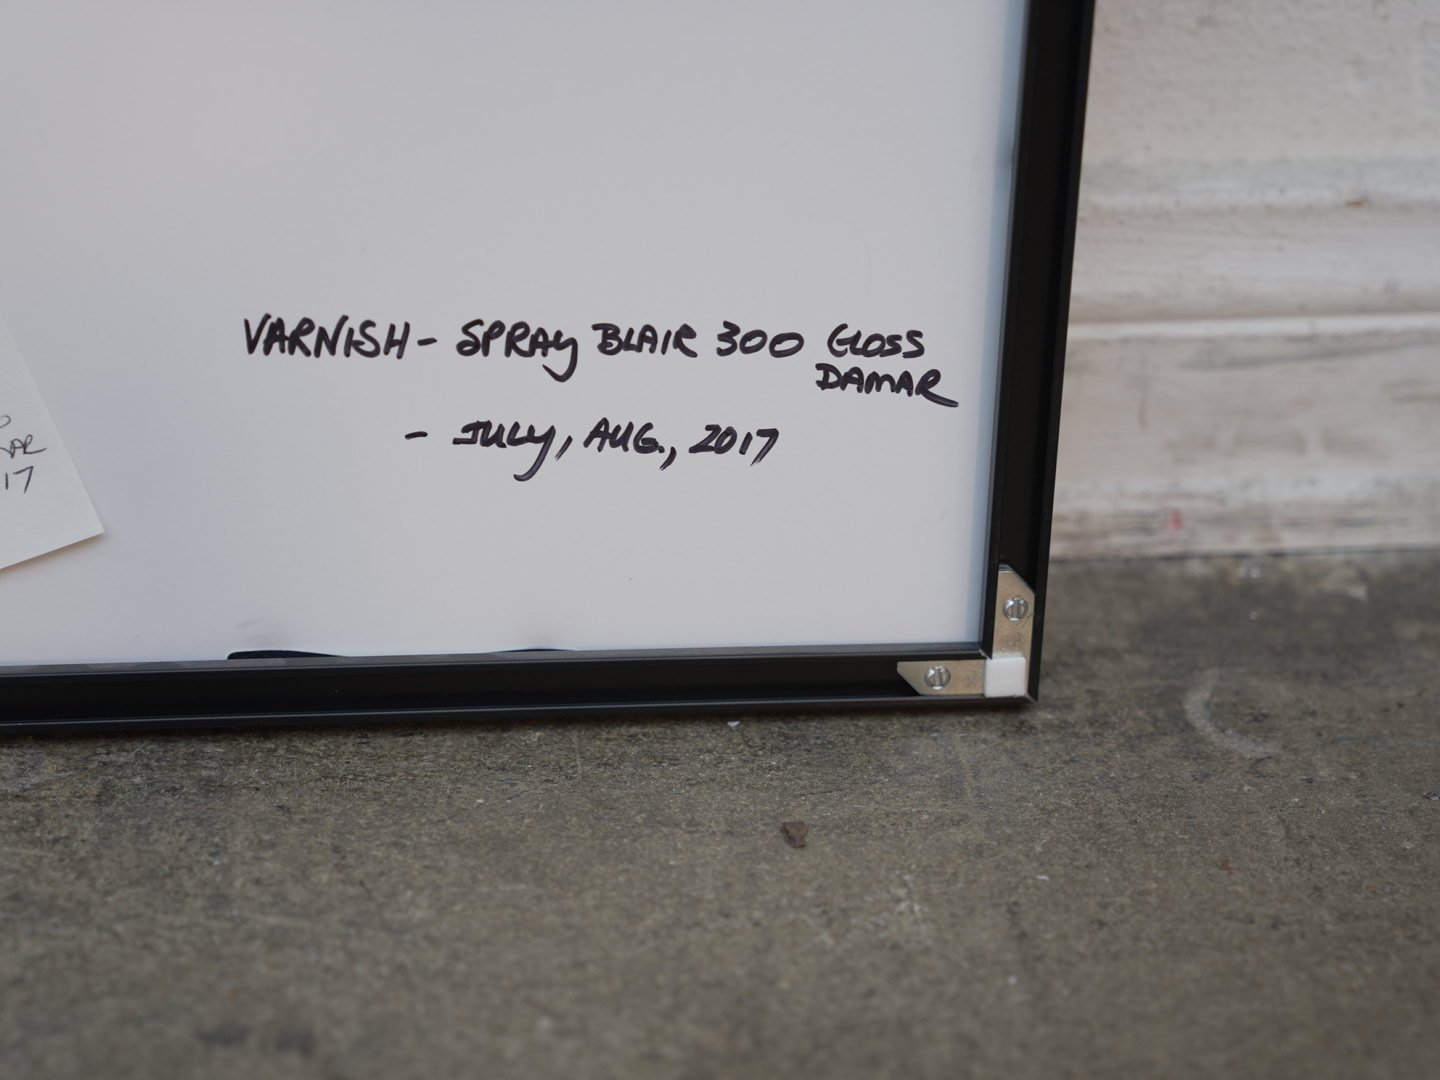 VARNISH - SPRAY BLAIR 300 GLOSS
DAMAR
- JULY, AUG., 2017
AR
17